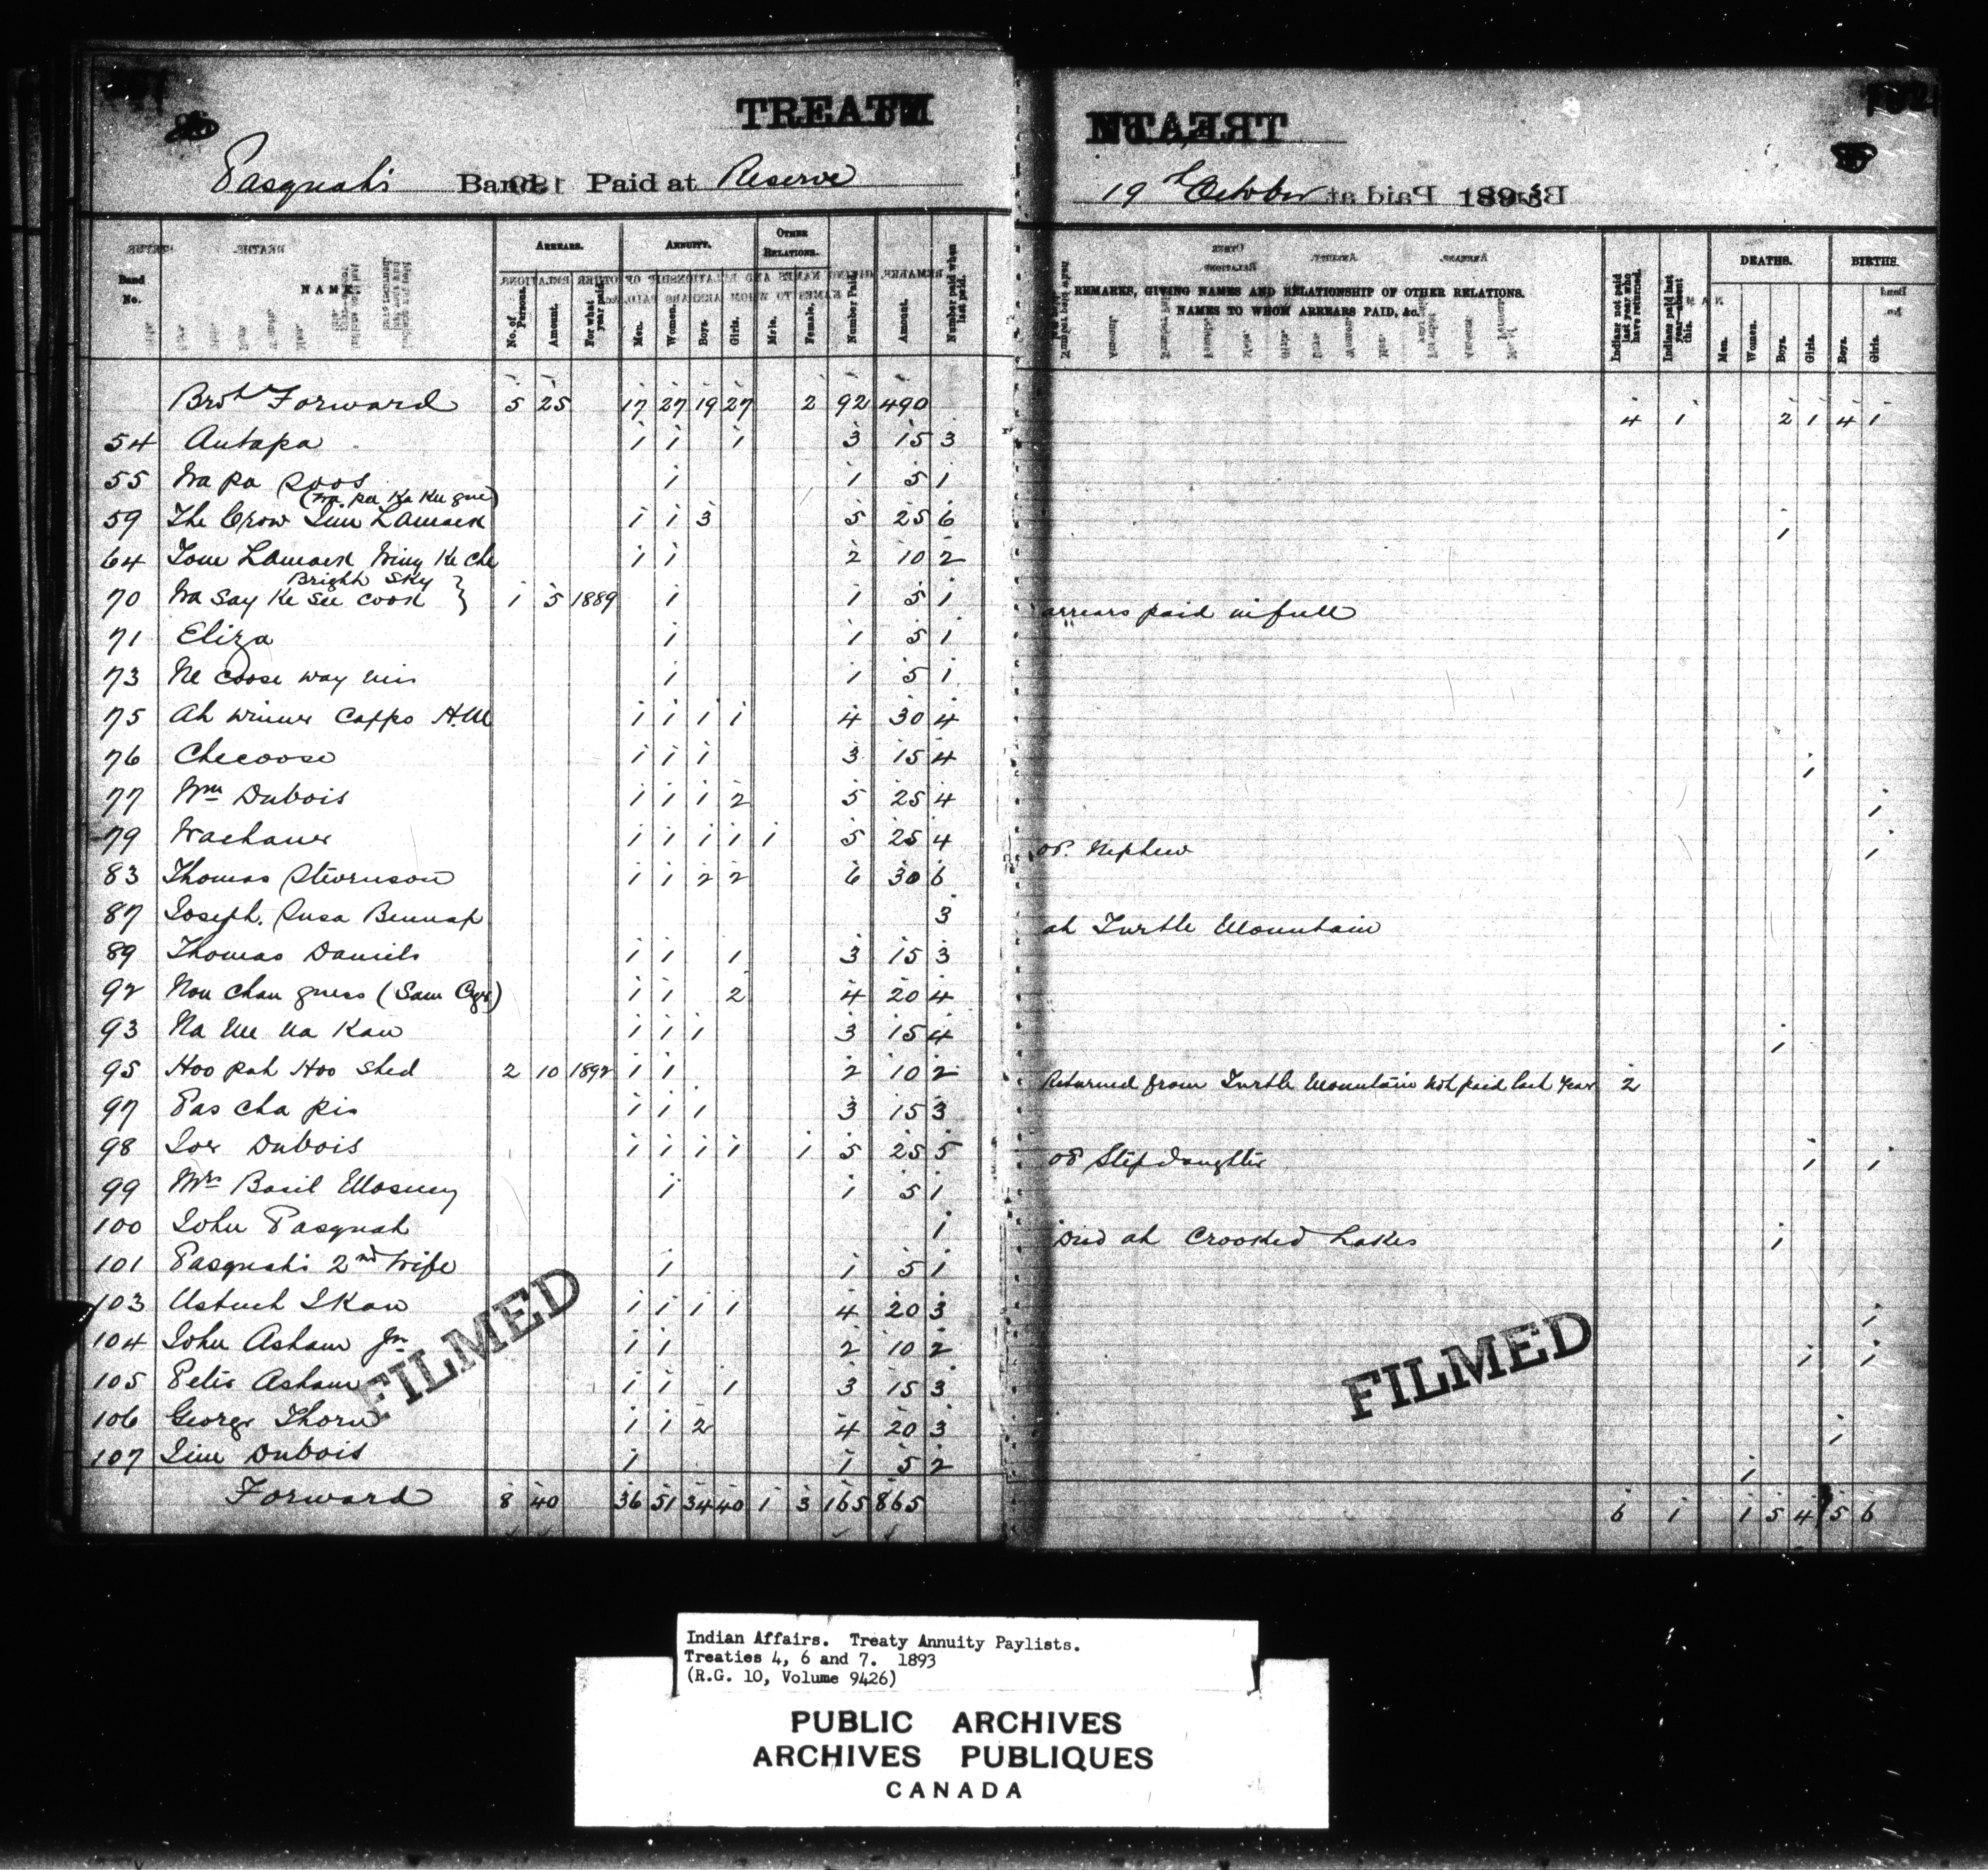 TREATY
Pasquah's Band Paid at Reserve
19th October 1893
Band No. NAME. ARREARS. No. of Persons. Amount. For what year paid. ANNUITY. Men. Women. Boys. Girls. OTHER RELATIONS. Male. Female. Number Paid. Amount. Number paid when last paid. REMARKS, GIVING NAMES AND RELATIONSHIP OF OTHER RELATIONS. NAMES TO WHOM ARREARS PAID, &c. Indians not paid last year who have returned. Indians paid last year—absent this. DEATHS. Men. Women. Boys. Girls. BIRTHS. Boys. Girls.
Brot Forward 5 25 17 27 19 27 2 92 490 4 1 2 1 4 1
54 Autapa 1 1 1 3 15 3
55 Wa pa poos 1 1 5 1
(Wa pa Ka Ku gue)
59 The Crow Jim Lamack 1 1 3 5 25 6 1
64 Tom Lamack Winy Ke che 1 1 2 10 2
Bright Sky
70 Wa Say Ke See Cook } 1 5 1889 1 1 5 1 arrears paid in full
71 Eliza 1 1 5 1
73 Ne coose way nis 1 1 5 1
75 Ah winner Cappo H.M 1 1 1 1 4 30 4
76 Checoose 1 1 1 3 15 4 1
77 Wm Dubois 1 1 1 2 5 25 4 1
79 Wachaner 1 1 1 1 1 5 25 4 or. Nephew 1
83 Thomas Stevenson 1 1 2 2 6 30 6
87 Joseph. Susa Bennap 3 at Turtle Mountain
89 Thomas Daniels 1 1 1 3 15 3
92 Nou chou guess (Sam Cyr) 1 1 2 4 20 4
93 Na me na Kaw 1 1 1 3 15 4 1
95 Hoo pah Hoo Shed 2 10 1892 1 1 2 10 2 Returned from Turtle Mountain not paid last year 2
97 Pas cha pis 1 1 1 3 15 3
98 Joe Dubois 1 1 1 1 1 5 25 5 or Stepdaughter 1 1
99 Mrs Basil Mosney 1 1 5 1
100 John Pasquah 1 Died at Crooked Lakes 1
101 Pasquah's 2nd Wife 1 1 5 1
103 Astuch I Kaw 1 1 1 1 4 20 3 1
104 John Asham Jn 1 1 2 10 2 1 1
105 Peter Asham 1 1 1 3 15 3
106 George Thorn 1 1 2 4 20 3 1
107 Jim Dubois 1 1 5 2 1
Forward 8 40 36 51 34 40 1 3 165 865 6 1 1 5 4 5 6
FILMED
FILMED
Indian Affairs. Treaty Annuity Paylists.
Treaties 4, 6 and 7. 1893
(R.G. 10, Volume 9426)
PUBLIC ARCHIVES
ARCHIVES PUBLIQUES
CANADA